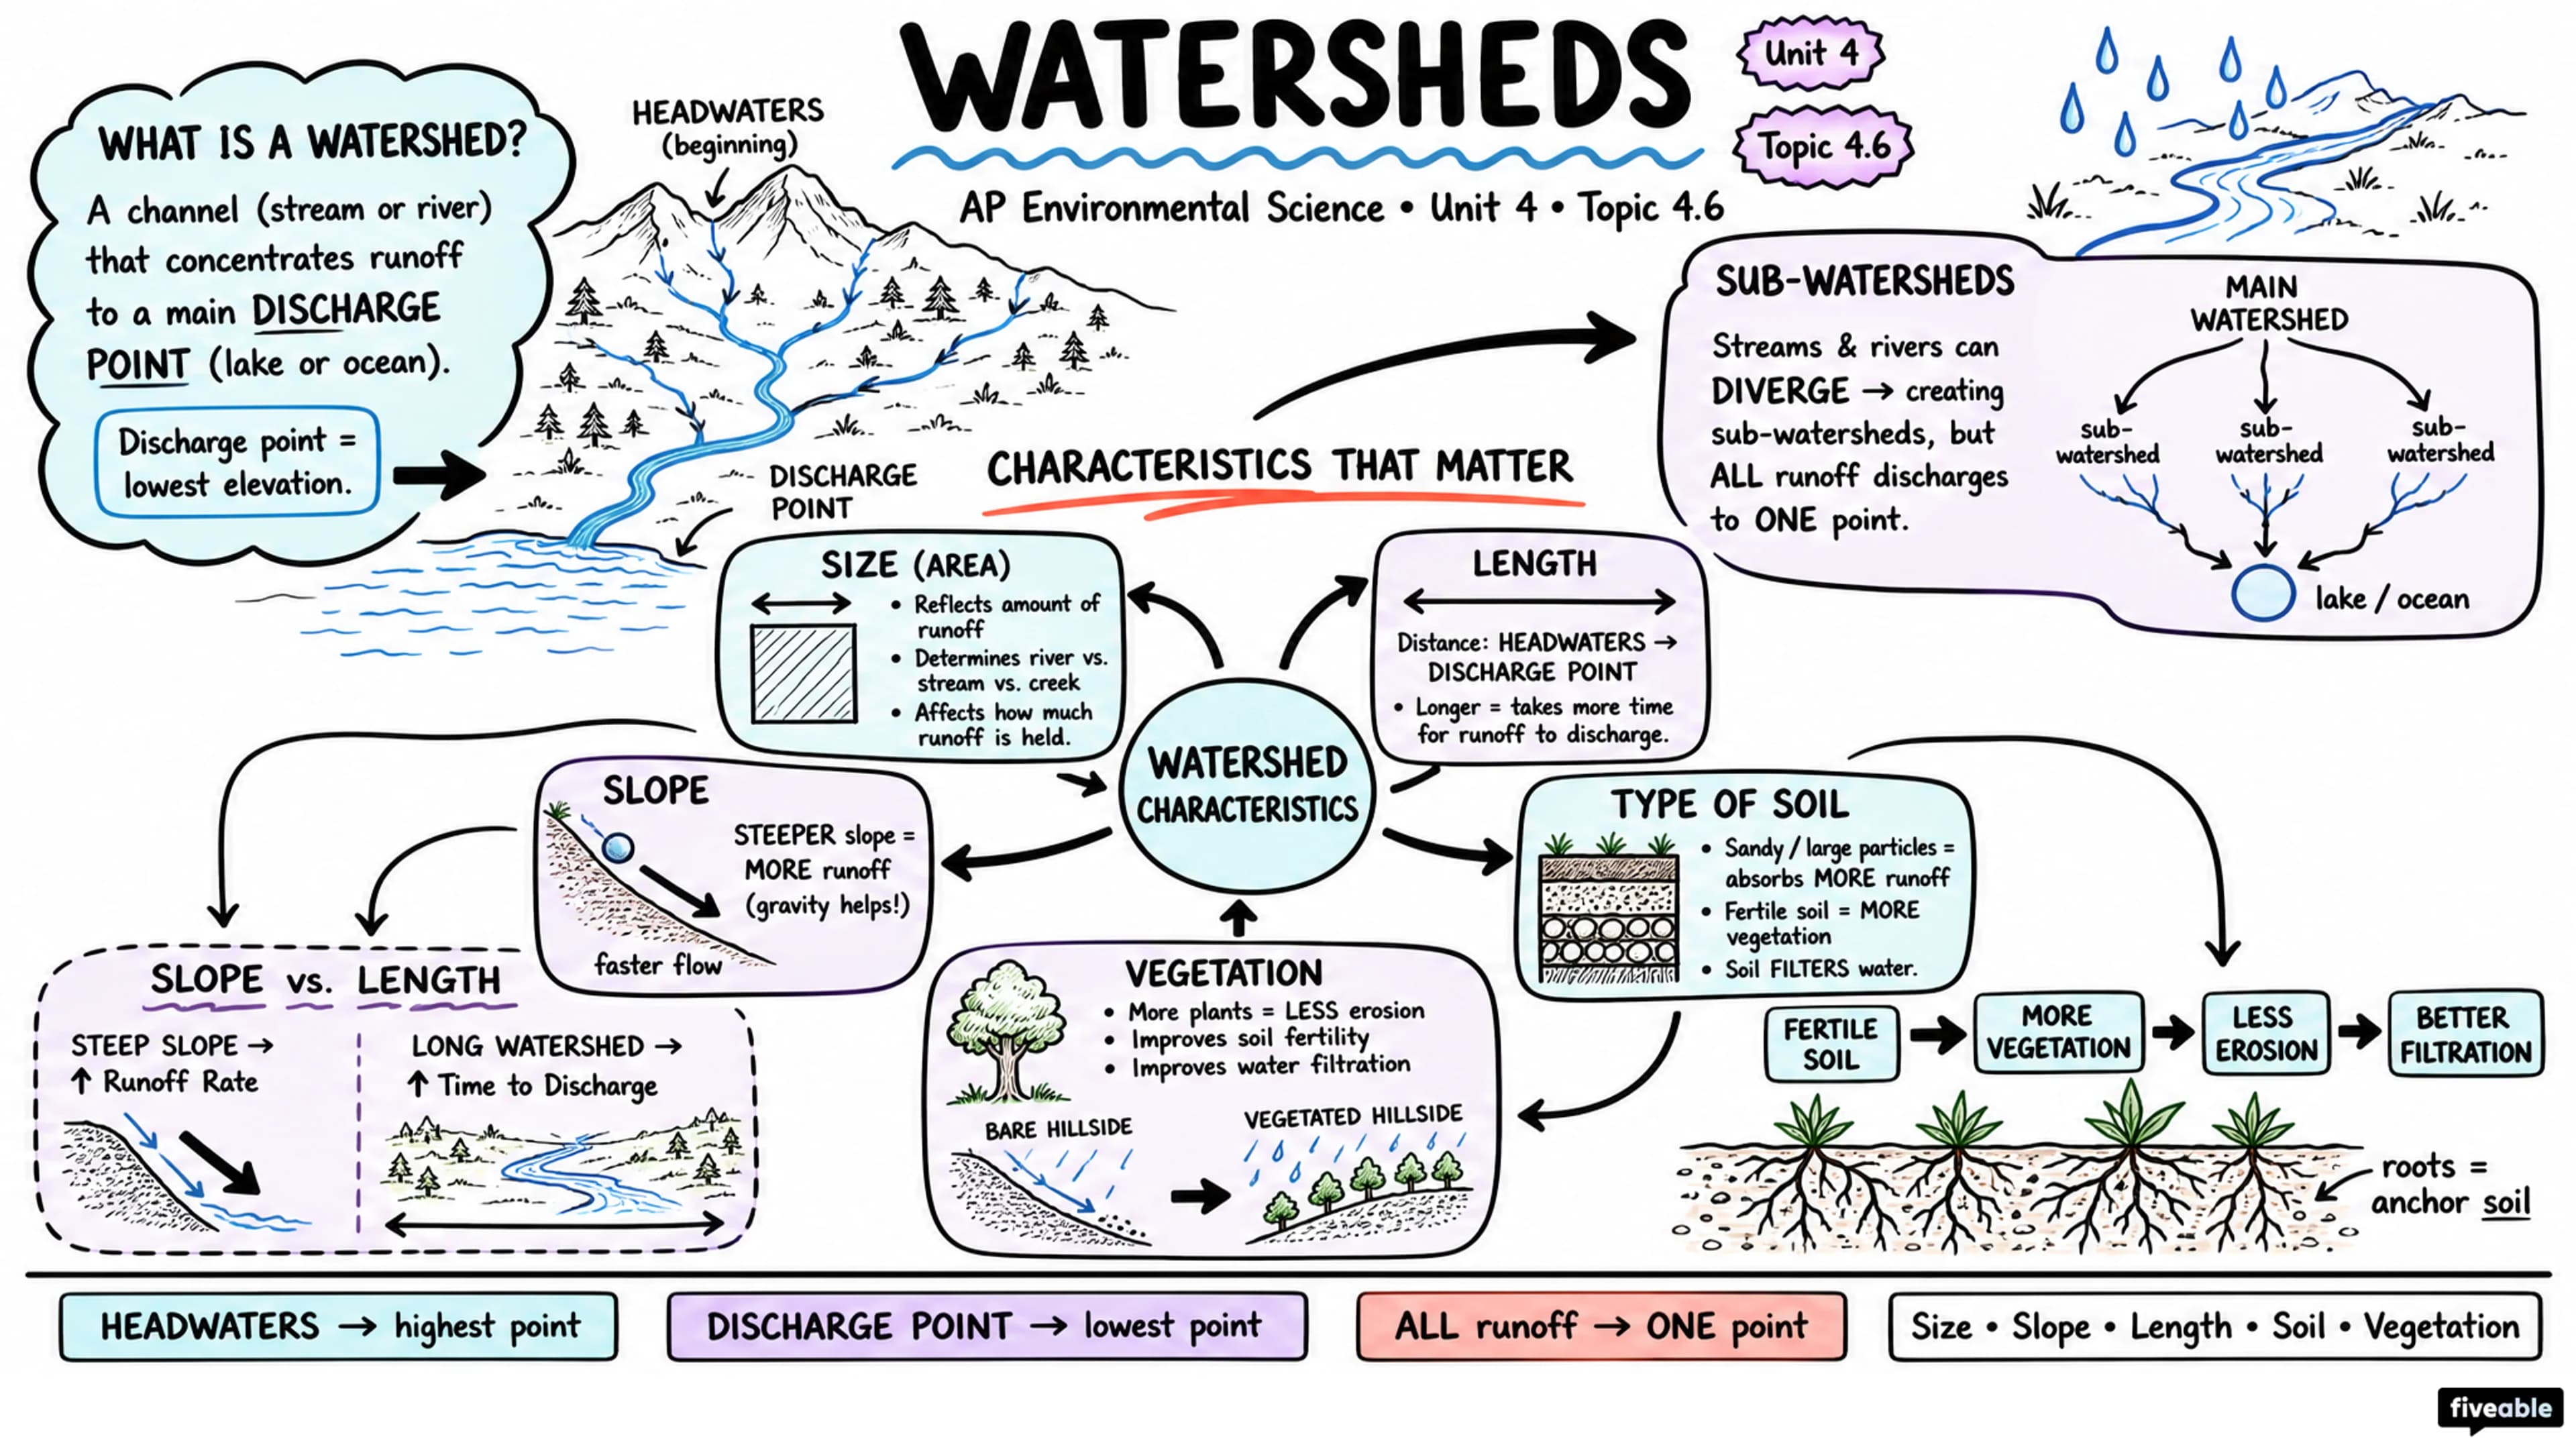 WATERSHEDS
Unit 4
Topic 4.6
AP Environmental Science • Unit 4 • Topic 4.6
WHAT IS A WATERSHED?
A channel (stream or river)
that concentrates runoff
to a main DISCHARGE
POINT (lake or ocean).
Discharge point =
lowest elevation.
HEADWATERS
(beginning)
DISCHARGE
POINT
SUB-WATERSHEDS
Streams & rivers can
DIVERGE → creating
sub-watersheds, but
ALL runoff discharges
to ONE point.
MAIN
WATERSHED
sub-
watershed
sub-
watershed
sub-
watershed
lake / ocean
CHARACTERISTICS THAT MATTER
SIZE (AREA)
• Reflects amount of
runoff
• Determines river vs.
stream vs. creek
• Affects how much
runoff is held.
LENGTH
Distance: HEADWATERS →
DISCHARGE POINT
• Longer = takes more time
for runoff to discharge.
WATERSHED
CHARACTERISTICS
SLOPE
STEEPER slope =
MORE runoff
(gravity helps!)
faster flow
TYPE OF SOIL
• Sandy / large particles =
absorbs MORE runoff
• Fertile soil = MORE
vegetation
• Soil FILTERS water.
SLOPE vs. LENGTH
STEEP SLOPE →
↑ Runoff Rate
LONG WATERSHED →
↑ Time to Discharge
VEGETATION
• More plants = LESS erosion
• Improves soil fertility
• Improves water filtration
BARE HILLSIDE
VEGETATED HILLSIDE
FERTILE
SOIL
MORE
VEGETATION
LESS
EROSION
BETTER
FILTRATION
roots =
anchor soil
HEADWATERS → highest point
DISCHARGE POINT → lowest point
ALL runoff → ONE point
Size • Slope • Length • Soil • Vegetation
fiveable